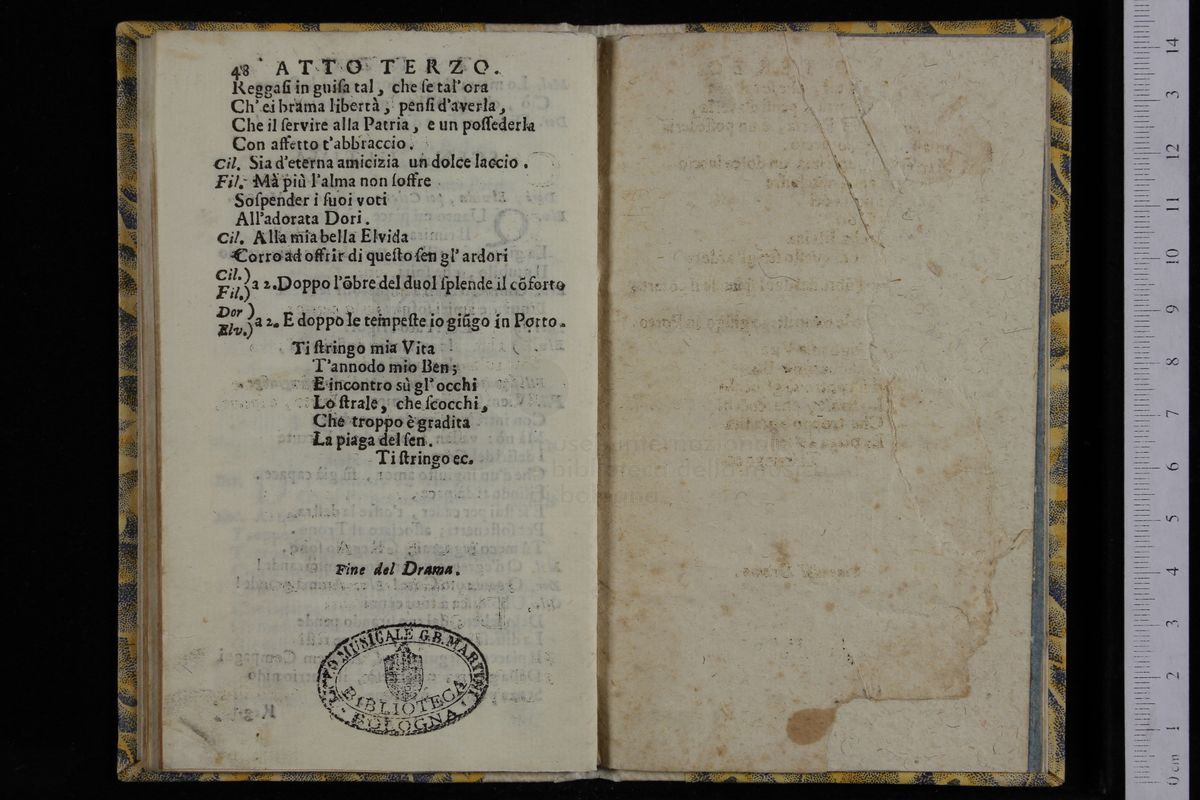 48 ATTO TERZO.
Reggaſi in guiſa tal, che ſe tal'ora
Ch'ei brama libertà, penſi d'averla,
Che il ſervire alla Patria, e un poſſederla
Con affetto t'abbraccio.
Cil. Sia d'eterna amicizia un dolce laccio.
Fil. Mà più l'alma non ſoffre
Soſpender i ſuoi voti
All'adorata Dori.
Cil. Alla mia bella Elvida
Corro ad offrir di queſto ſen gl'ardori
Cil.)
Fil.) a 2. Doppo l'õbre del duol ſplende il cõforto
Dor )
Elv.) a 2. E doppo le tempeſte io giũgo in Porto.
Ti ſtringo mia Vita
T'annodo mio Ben;
E incontro sù gl'occhi
Lo ſtrale, che ſcocchi,
Che troppo è gradita
La piaga del ſen.
Ti ſtringo ec.
Fine del Drama.
MUSICALE G.B. MARTINI
BIBLIOTECA
BOLOGNA
museo internazionale
biblioteca della musica
bologna
0 cm 1 2 3 4 5 6 7 8 9 10 11 12 3 14